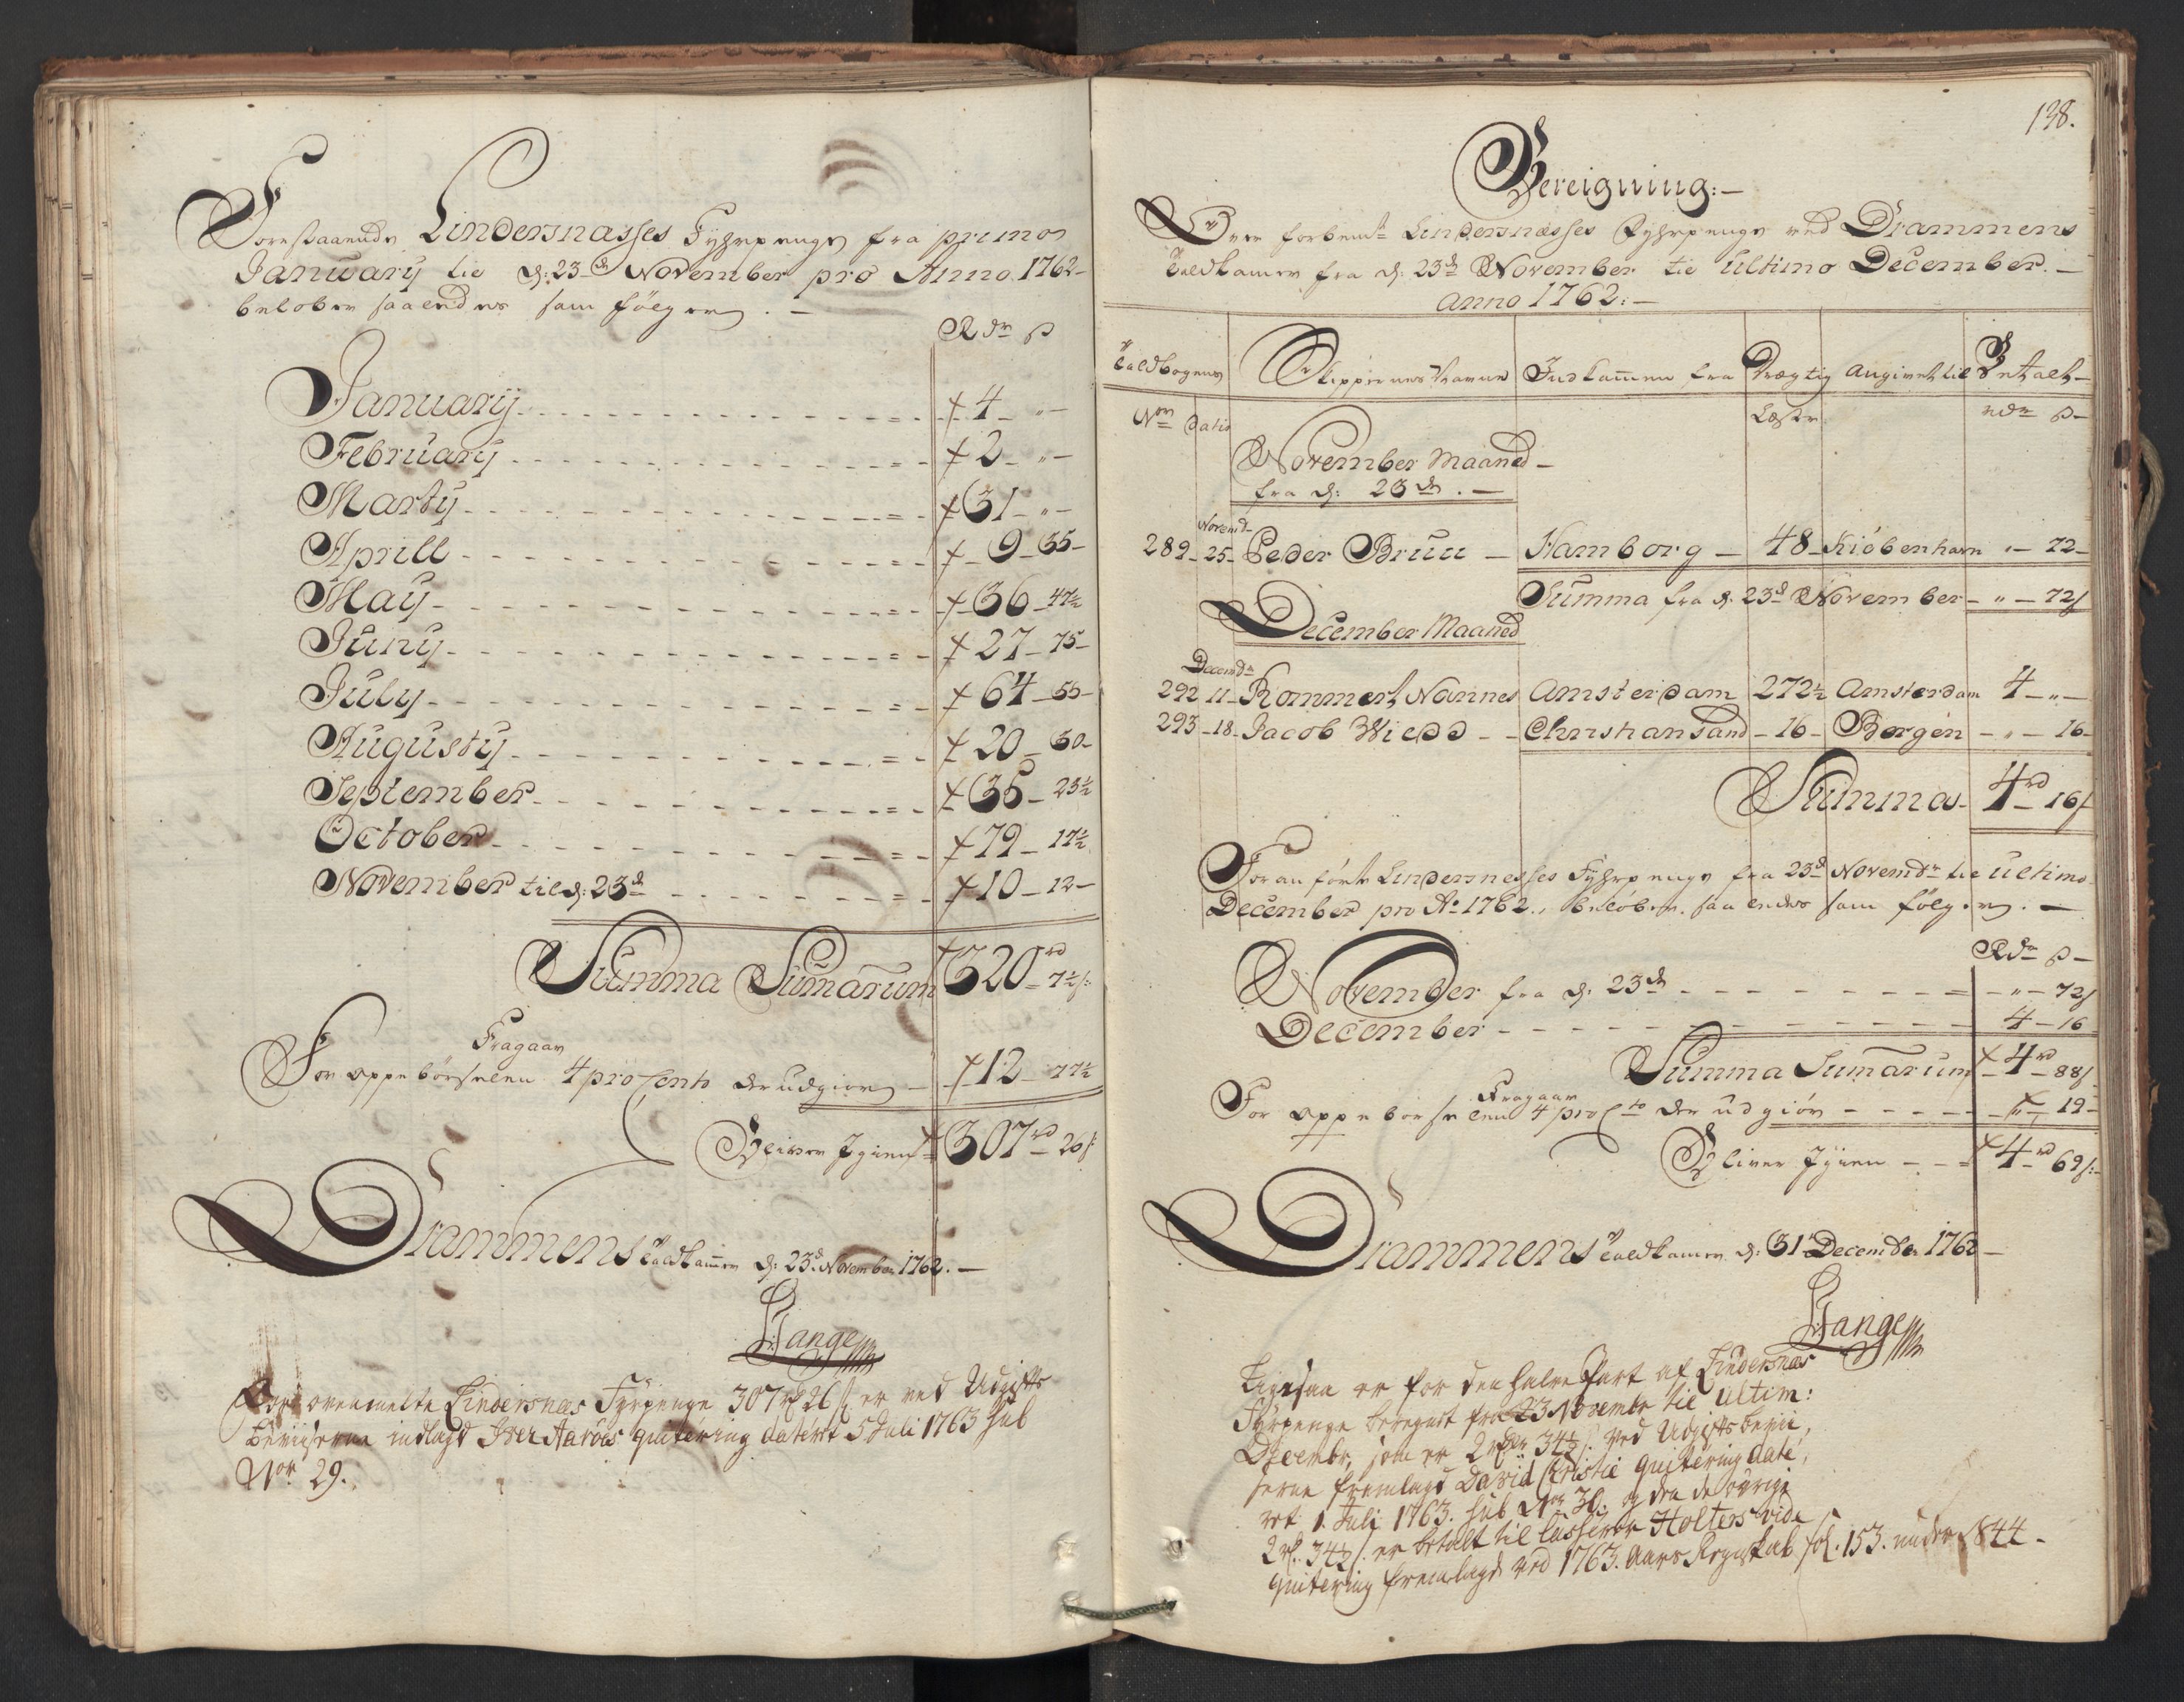 Forestaaende Lindersnæsses Fyhrpenge fra primo
January til d: 23de November pro Anno 1762
beløber saaledes som følger. —
Rdr ß
January 4 - " -
February 2 - " -
Marty 31 - " -
Aprill 9 - 35 -
May 36 - 47½
Juny 27 - 75 -
July 64 - 55 -
Augusty 20 - 30 -
September 35 - 23½
October 79 - 17½
November til d: 23de 10 - 12 -
Summa Sumarum 320 rd 7½ ß:
Fragaar
For oppebørselen 4 pro Cento der udgiør 12 - 77½
Bliver Igien 307 rd 26 ß
Drammens Toldkammer d: 23de November 1762. —
Stange
For ovenmelte Lindersnæs Fyrpenge 307 rd 26 ß er ved Udgifts
beviiserne indlagt Iver Aarøes quitering dateret 5 Juli 1763 sub
Nor 29.
138.
Bereigning: —
Over forbemte Lindersnæsses Fyhrpenge ved Drammens
Toldkamer fra d: 23de November til Ultimo December. —
Anno 1762: —
Toldbogens Skippernes Navne Indkommen fra Drægtig Angivet til Betalt —
Nor Dato Læster rdr ß —
November Maaned —
fra d: 23de . —
Novemb
289 - 25 - Peder Bruu — Hamborg — 48 - Kiøbenhavn " — 72 -
Summa fra d. 23de November - " - 72 ß
December Maaned
Decembr
292 11 - Rommert Nannes Amsterdam 272½ Amsterdam 4 - " -
293 - 18 - Jacob Wiedd - - Christiansand - 16 - Bergen - " - 16 -
Summa - 4 rd 16 ß
Foranførte Lindersnesses Fyhrpenge fra 23de Novembr til Ultimo
December pro Ao 1762., beløber saaledes som følger. —
Rdr ß —
November fra d: 23de - " - 72 ß
December 4 - 16
Summa Sumarum 4 rd 88 ß
Fragaar
For oppebørselen 4 pro Cto der udgiør - " - 19 -
Bliver Igien - - 4 rd 69 ß: -
Drammens Toldkamer d: 31te December 1762 —
Stange
Ligesaa er for den halve Part af Lindersnæs
Fyrpenge beregnet fra 23 Novembr til Ultim:
Decembr, som er 2 rdr 34½ ß. ved Udgifts bevii,
serne fremlagd David Christie quitering date,
ret 1. Juli 1763. sub Nor 30: og den de øvrige
2 rd. 34½ ß. er betalt til Casserer Holters vide
quitering fremlagd ved 1763. Aars Regnskab fol. 153. under 844 -